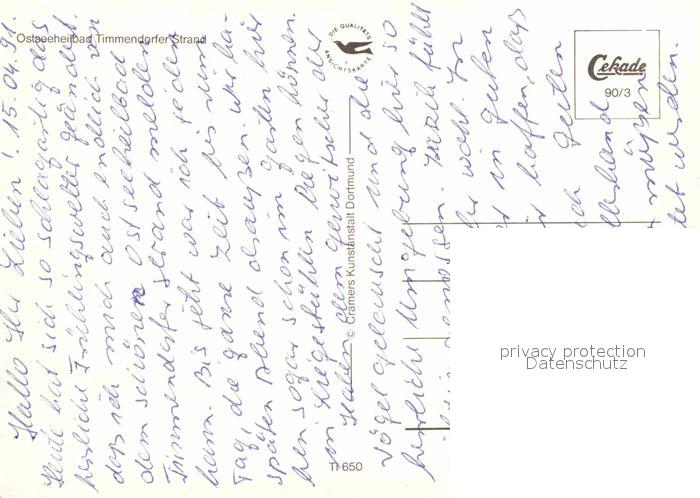 Ostseeheilbad Timmendorfer Strand
DIE QUALITÄTS
ANSICHTSKARTE
Cekade
90/3
© Cramers Kunstanstalt Dortmund
TI 650
Hallo Ihr Lieben! 15.04.91.
Heute hat sich so schlagartig das
herrliche Frühlingswetter geändert
daß ich mich auch endlich von
dem schönen Ostseeheilbad
Timmendorfer Strand melden
kann. Bis jetzt war ich jeden
Tag, die ganze Zeit bis zum
späten Abend draußen. Wir ha-
ben sogar schon im Garten hier
in Liegestühlen liegen können.
Haben dem Gezwitscher der
Vögel gelauscht und die
herrliche Umgebung hier so
genossen. fühlt
wohl. In
ist in guten
hoffen, daß
ich Guten
müssen
werden.
privacy protection
Datenschutz